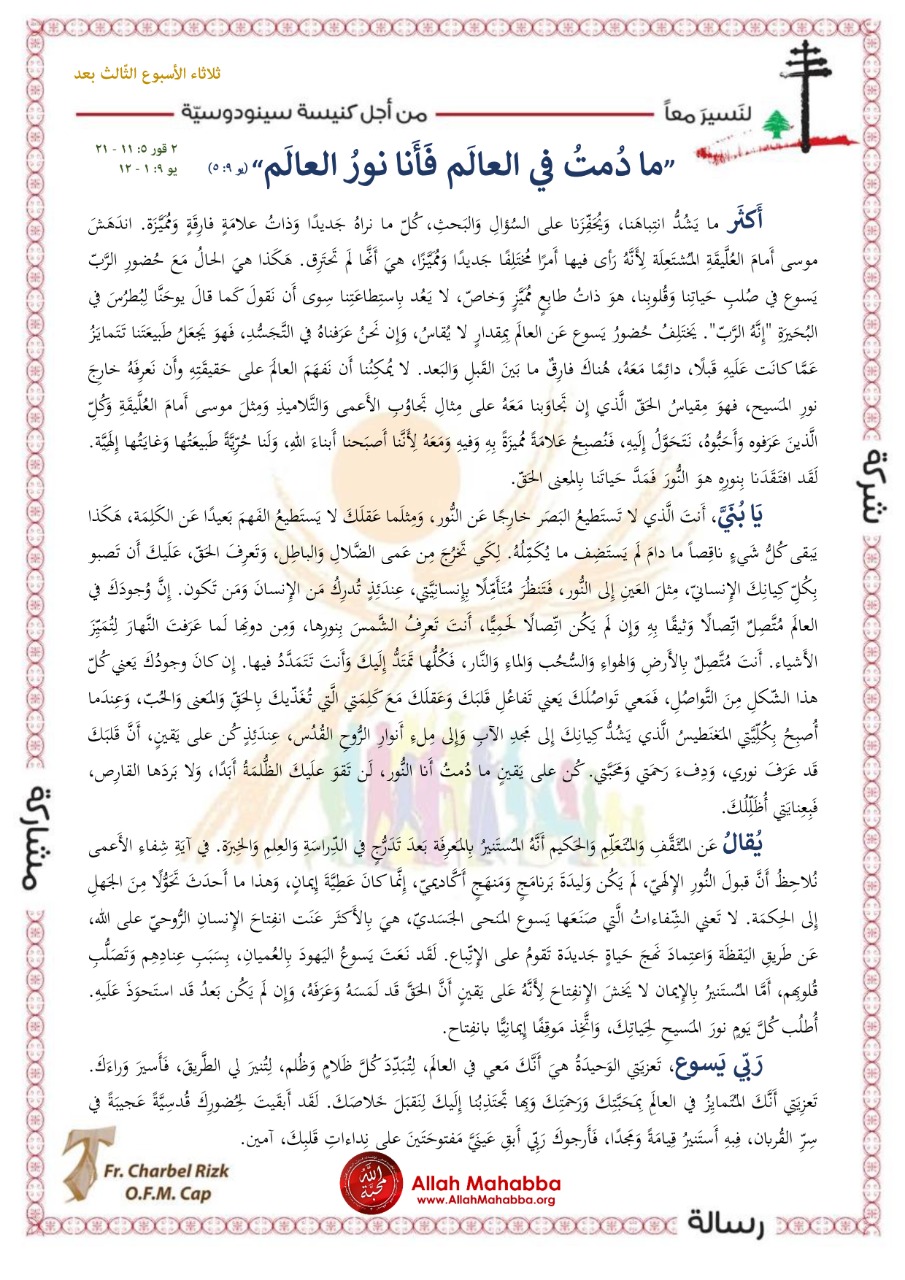 ثلاثاء الأسبوع الثّالث بعد
لنَسيرَ معاً
من أجل كنيسة سينودوسيّة
٢ قور ٥: ١١ - ٢١
يو ٩: ١ - ١٢
”ما دُمتُ في العالَم فَأَنا نورُ العالَم“ (يو ٩: ٥)
أَكثَر ما يَشُدُّ انتِباهَنا، وَيُحَفِّزَنا على السُؤالِ وَالبَحثِ، كُلّ ما نراهُ جَديدًا وَذاتُ علامَةٍ فارِقَةٍ وَمُمَيَّزَة. اندَهَشَ
موسى أَمامَ العُلَّيقَةِ المُشتَعِلَة لِأَنَّهُ رَأى فيها أَمرًا مُختَلِفًا جَديدًا وَمُمَيَّزًا، هيَ أَنَّها لَم تَحتَرِق. هَكَذا هيَ الحالُ مَعَ حُضورِ الرَّبّ
يَسوع في صُلبِ حَياتِنا وَقُلوبِنا، هوَ ذاتُ طابِعٍ مُمَيَّزٍ وَخاصّ، لا يَعُد بِاستِطاعَتِنا سِوى أَن نَقولَ كَما قالَ يوحَنَّا لِبُطرُسَ في
البُحَيرَةِ "إِنَّهُ الرَّبّ". يَختَلِفُ حُضورُ يَسوع عَن العالَمِ بِمِقدارٍ لا يُقاسُ، وَإِن نَحنُ عَرَفناهُ في التَّجَسُّدِ، فَهوَ يَجعَلُ طَبيعَتَنا تَتَمايَزُ
عَمَّا كانَت عَلَيهِ قَبلًا، دائِمًا مَعَهُ، هُناكَ فارِقٌ ما بَينَ القَبلِ وَالبَعد. لا يُمكِنُنا أَن نَفهَمَ العالَمَ على حَقيقَتِهِ وَأَن نَعرِفَهُ خارِجَ
نورِ المَسيح، فهوَ مِقياسُ الحَقّ الَّذي إِن تَجاوَبنا مَعَهُ على مِثالِ تَجاوُبِ الأَعمى وَالتَّلاميذِ وَمِثلَ موسى أَمامَ العُلَّيقَةِ وَكُلِّ
الَّذينَ عَرَفوه وَأَحَبُّوهُ، نَتَحَوَّلُ إِلَيهِ، فَنُصبِحُ عَلامَةً مُميزَةً بِهِ وَفيهِ وَمَعَهُ لِأَنَّنا أَصبَحنا أَبناءَ اللهِ، وَلَنا حُرِّيَّةٌ طَبيعَتُها وَغايَتُها إِلَهِيَّة.
لَقَد افتَقَدَنا بِنورِهِ هوَ النُّورَ فَمَدَّ حَياتَنا بِالمعنى الحَقّ.
يَا بُنَيَّ، أَنتَ الَّذي لا تَستَطيعُ البَصَرَ خارِجًا عَن النُّور، وَمِثلَما عَقلَكَ لا يَستَطيعُ الفَهمَ بَعيدًا عَن الكَلِمَة، هَكَذا
يَبقى كُلُّ شَيءٍ ناقِصاً ما دامَ لَم يَستَضِف ما يُكَمِّلُهُ. لِكَي تَخرُجَ مِن عَمى الضَّلالِ وَالباطِلِ، وَتَعرِفَ الحَقّ، عَلَيكَ أَن تَصبو
بِكُلِّ كِيانِكَ الإِنسانيّ، مِثلَ العَينِ إِلى النُّور، فَتَنظُرَ مُتَأَمِّلًا بِإِنسانِيَّتي، عِندَئِذٍ تُدرِكُ مَن الإِنسانَ وَمَن تَكون. إِنَّ وُجودَكَ في
العالَمِ مُتَّصِلٌ اتِّصالًا وَثيقًا بِهِ وَإِن لَم يَكُن اتِّصالًا لَحمِيًّا، أَنتَ تَعرِفُ الشَّمسَ بِنورِها، وَمِن دونِها لَما عَرَفتَ النَّهارَ لِتُمَيِّزَ
الأَشياء. أَنتَ مُتَّصِلٌ بِالأَرضِ وَالهواءِ وَالسُّحُب وَالماءِ وَالنَّار، فَكُلُّها تَمتَدُّ إِلَيكَ وَأَنتَ تَتَمَدَّدُ فيها. إِن كانَ وجودُكَ يَعني كُلّ
هذا الشَّكلِ مِنَ التَّواصُلِ، فَمَعي تَواصُلَكَ يَعني تَفاعُلِ قَلبَكَ وَعَقلَكَ مَعَ كَلِمَتي الَّتي تُغَذّيكَ بِالحَقِّ وَالمَعنى وَالحُبّ، وَعِندَما
أُصبِحُ بِكُلِّيَّتي المَغنَطيسُ الَّذي يَشُدُّ كِيانِكَ إِلى مَجدِ الآبِ وَإِلى مِلءِ أَنوارِ الرُّوحِ القُدُس، عِندَئِذٍ كُن على يَقينٍ، أَنَّ قَلبَكَ
قَد عَرَفَ نوري، وَدِفءَ رَحمَتي وَمَحَبَّتي. كُن على يَقينٍ ما دُمتُ أَنا النُّور، لَن تَقوَ علَيكَ الظُّلمَةُ أَبَدًا، وَلا بَردَها القارِص،
فَبِعِنايَتي أُظَلِّلُكَ.
يُقالُ عَن المُثَقَّفِ وَالمُتَعَلِّمِ وَالحَكيم أَنَّهُ المُستَنيرُ بِالمَعرِفَة بَعدَ تَدَرُّجٍ في الدِّراسَةِ وَالعِلمِ وَالخِبرَة. في آيَةِ شِفاءِ الأَعمى
نُلاحِظُ أَنَّ قبولَ النُّورِ الإِلَهيّ، لَم يَكُن وَليدَةَ بَرنامَجٍ وَمَنهَجٍ أَكَّاديميّ، إِنَّما كانَ عَطِيَّةَ إِيمانٍ، وَهذا ما أَحدَثَ تَحَوُّلًا مِنَ الجَهلِ
إِلى الحِكمَة. لا تَعني الشِّفاءاتُ الَّتي صَنَعَها يَسوع المَنحى الجَسَديّ، هيَ بِالأَكثَر عَنَت انفِتاحَ الإِنسانِ الرُّوحيّ على الله،
عَن طَريقِ اليَقَظَةِ وَاعتِمادَ نَهجَ حَياةٍ جَديدَة تَقومُ على الإِتِّباع. لَقَد نَعَتَ يَسوعُ اليَهودَ بِالعُميانِ، بِسَبَبِ عِنادِهِم وَتَصَلُّبِ
قُلوبِهِم، أَمَّا المُستَنيرُ بِالإِيمان لا يَخشَ الإِنفِتاحَ لِأَنَّهُ عَلى يَقينٍ أَنَّ الحَقَّ قَد لَمَسَهُ وَعَرَفَهُ، وَإِن لَم يَكُن بَعدُ قَد استَحوَذَ عَلَيهِ.
أُطلُب كُلَّ يَومٍ نورَ المَسيحِ لِحَياتِكَ، وَاتَّخِذ مَوقِفًا إِيمانِيًّا بانفِتاح.
رَبّي يَسوع، تَعزِيَتي الوَحيدَةُ هيَ أَنَّكَ مَعي في العالَم، لِتُبَدِّدَ كُلَّ ظَلامٍ وَظُلم، لِتُنيرَ لي الطَّريقَ، فَأَسيرَ وَراءَكَ.
تَعزِيَتي أَنَّكَ المُتَمايِزُ في العالَمِ بِمَحَبَّتِكَ وَرَحمَتِكَ وَبِها تَجتَذِبُنا إِلَيكَ لِنَقبَلَ خَلاصَكَ. لَقَد أَبقَيتَ لِحُضورِكَ قُدسِيَّةً عَجيبَةً في
سِرِّ القُربان، فَبِهِ أَستَنيرُ قِيامَةً وَمَجدًا، فَأَرجوكَ رَبِّي أَبقِ عَينَيَّ مَفتوحَتَينَ على نِداءاتِ قَلبِكَ، آمين.
شركة
مشاركة
رسالة
Fr. Charbel Rizk
O.F.M. Cap
الله محبّة
Allah Mahabba
www.AllahMahabba.org